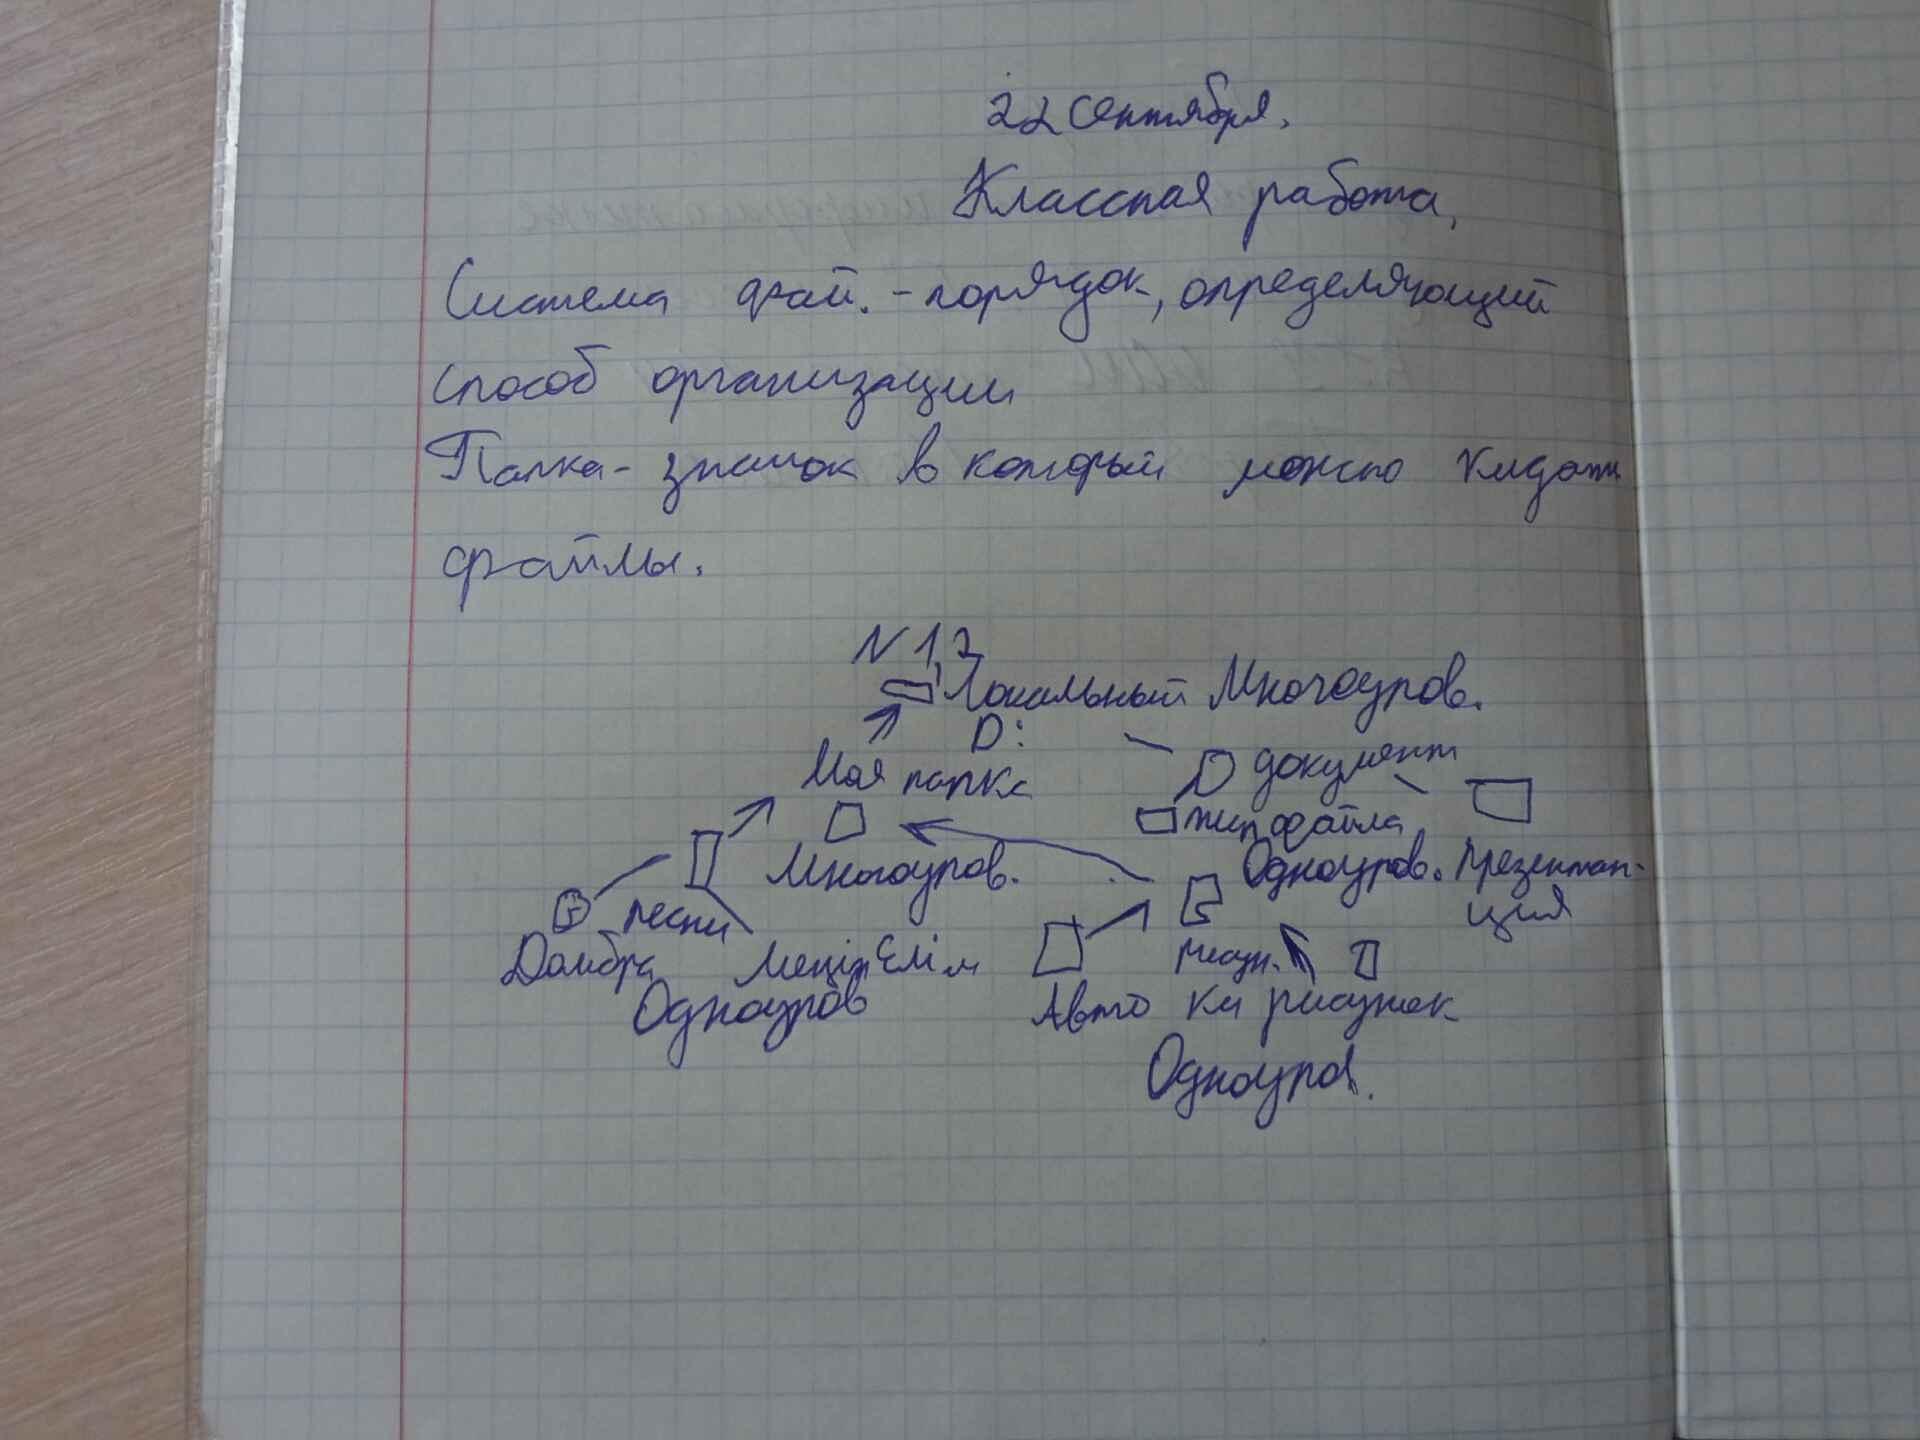 22 сентября.
Классная работа,
Система фай. - порядок, определяющий
способ организации
Папка - значок в который можно кидать
файлы.
N 1,2
Локальный Многоуров.
D:
Моя папка
D документ
тип файла
Многоуров.
Одноуров. Презентац-
ция
песни
Домбра Менің Елім
рисун.
Одноуров
Авто ки рисунок
Одноуров.